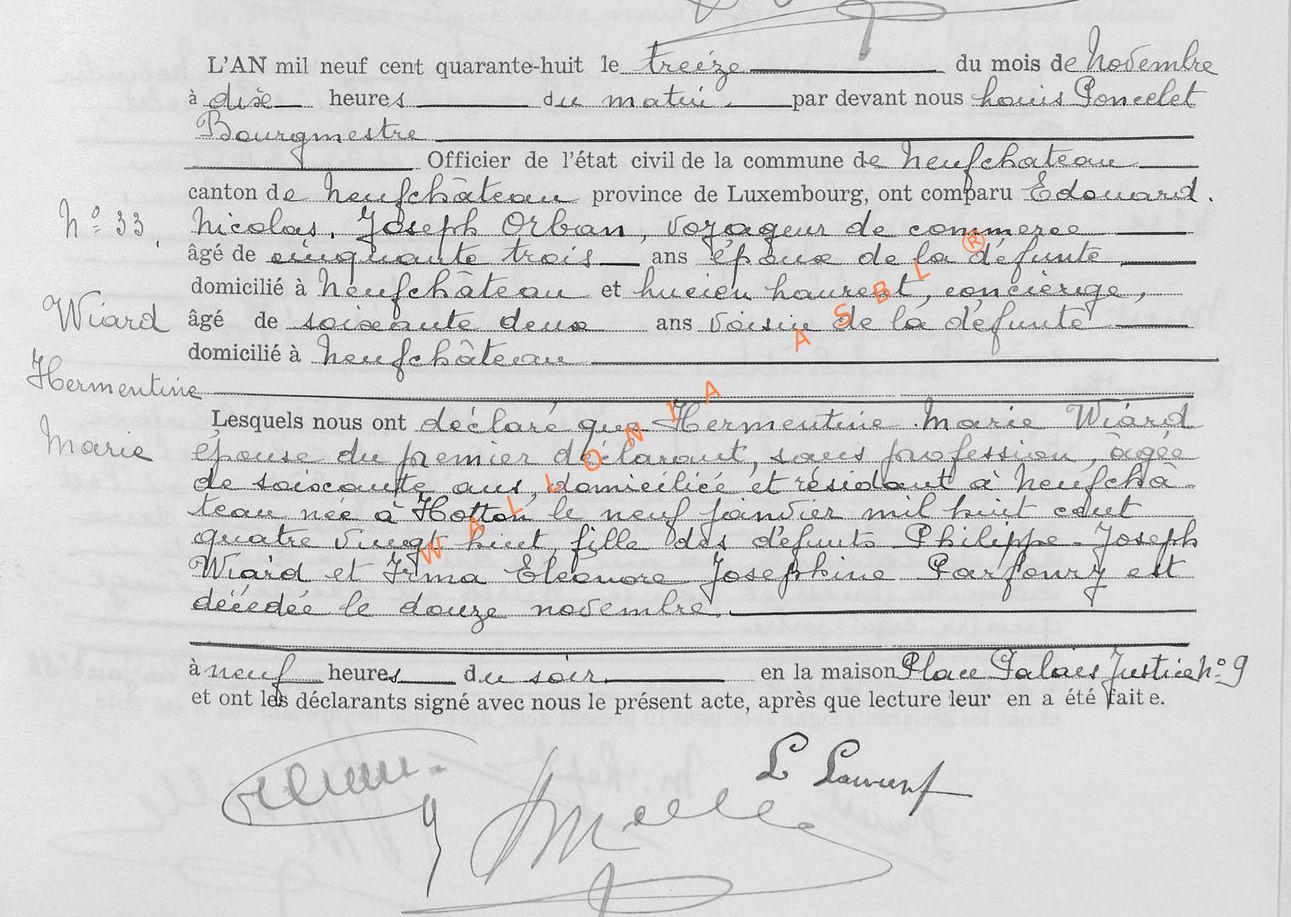 L'AN mil neuf cent quarante-huit le treize du mois de Novembre
à dix heures du matin par devant nous Louis Poncelet
Bourgmestre
Officier de l'état civil de la commune de Neufchateau
canton de Neufchâteau province de Luxembourg, ont comparu Edouard.
N° 33. Nicolas. Joseph Orban, voyageur de commerce
âgé de cinquante trois ans époux de la défunte
domicilié à Neufchâteau et Lucien Laurent, concierge,
Wiard âgé de soixante deux ans voisin de la défunte
domicilié à Neufchâteau
Hermentine
Lesquels nous ont déclaré que Hermentine Marie Wiard
Marie épouse du premier déclarant, sans profession, âgée
de soixante ans, domiciliée et résidant à Neufchâ-
teau née à Hotton le neuf janvier mil huit cent
quatre vingt huit, fille des défunts Philippe-Joseph
Wiard et Irma Eléonore Josephine Parfonry est
décédée le douze novembre.
à neuf heures du soir en la maison Place Palais Justice n° 9
et ont les déclarants signé avec nous le présent acte, après que lecture leur en a été faite.
L Laurent
WALLONIA ASBL ®